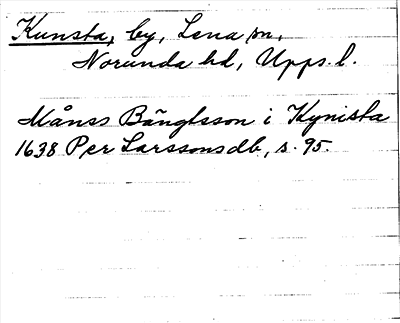 Kunsta, by, Lena sn,
Norunda hd, Upps. l.
Månss Bängtsson i Kynista
1638 Per Larssons db, s. 95.